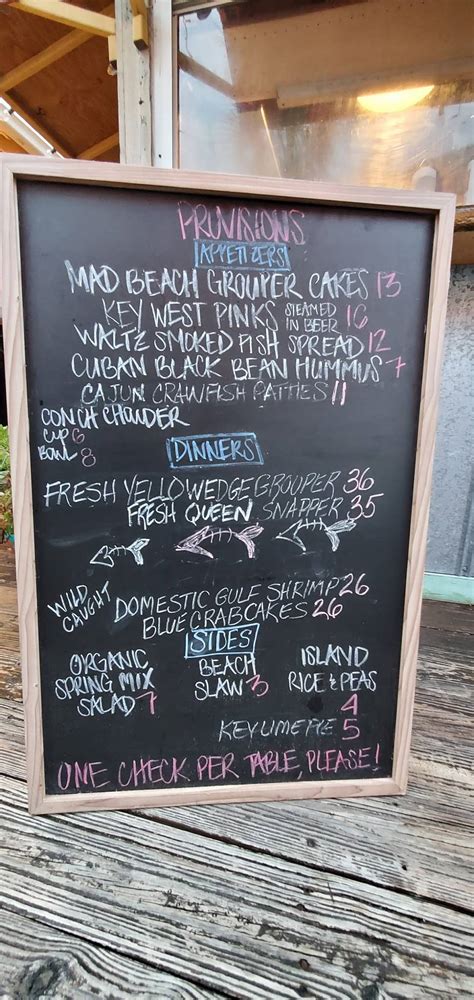 PROVISIONS
APPETIZERS
MAD BEACH GROUPER CAKES 13
KEY WEST PINKS STEAMED IN BEER 16
WALTZ SMOKED FISH SPREAD 12
CUBAN BLACK BEAN HUMMUS 7
CAJUN CRAWFISH PATTIES 11
CONCH CHOWDER
CUP 6
BOWL 8
DINNERS
FRESH YELLOWEDGE GROUPER 36
FRESH QUEEN SNAPPER 35
WILD CAUGHT
DOMESTIC GULF SHRIMP 26
BLUE CRAB CAKES 26
SIDES
ORGANIC
SPRING MIX
SALAD 7
BEACH
SLAW 3
ISLAND
RICE & PEAS
4
KEY LIME PIE 5
ONE CHECK PER TABLE, PLEASE!